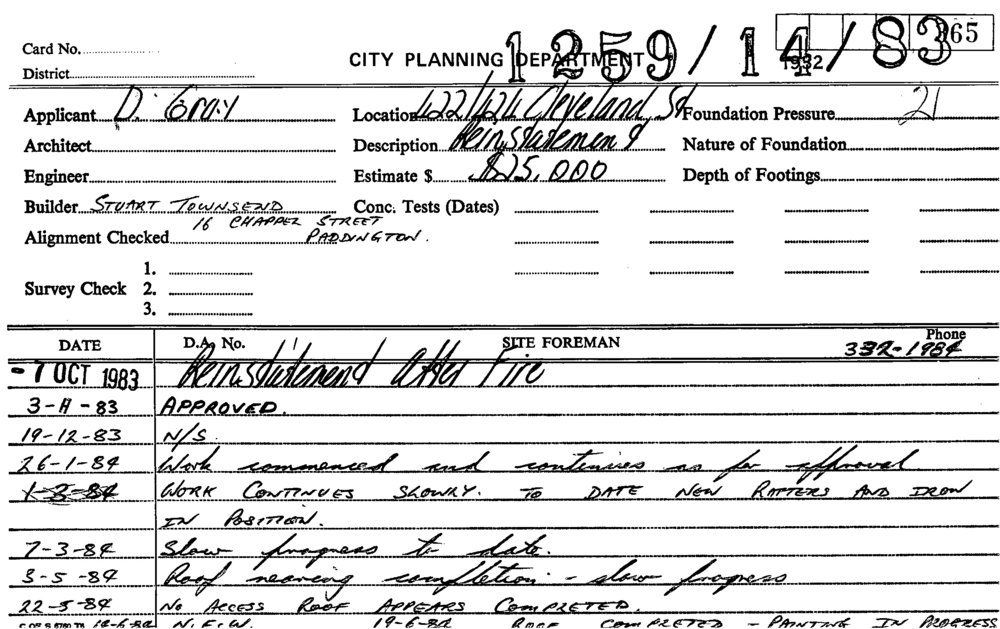 1259/14/83
65
Card No.
CITY PLANNING DEPARTMENT
1932
District
Applicant D. Gray
Location 422/424 Cleveland St
Foundation Pressure 21
Architect
Description Reinstatement
Nature of Foundation
Engineer
Estimate $ $25,000
Depth of Footings
Builder STUART TOWNSEND
Conc. Tests (Dates)
16 CHAPPER STREET
Alignment Checked PADDINGTON.
1.
Survey Check 2.
3.
DATE D.A. No. SITE FOREMAN Phone
332-1984
-7 OCT 1983 Reinstatement after Fire
3-11-83 APPROVED.
19-12-83 N/S.
26-1-84 Work commenced and continues as per approval
1-3-84 WORK CONTINUES SLOWLY. TO DATE NEW RAFTERS AND IRON
IN POSITION.
7-3-84 Slow progress to date.
3-5-84 Roof nearing completion - slow progress
22-5-84 NO ACCESS ROOF APPEARS COMPLETED.
14-6-84 N.F.W. 19-6-84 ROOF COMPLETED - PAINTING IN PROGRESS